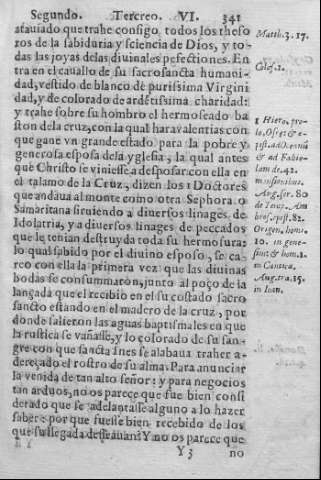 Segundo. Tercero. VI. 341
atauiado que trahe consigo todos los theso
ros de la sabiduria y sciencia de Dios, y to-
das las joyas delas diuinales pefectiones. En
tra en el cauallo de su sacrosancta humani-
dad, vestido de blanco de purissima Virgini
dad, y de colorado de ardētissima charidad:
y trahe sobre su hombro el hermoseado ba
ston dela cruz, con la qual hara valentias con
que gane vn grande estado para la pobre y
generosa esposa dela yglesia, la qual antes
que Christo se viniesse a desposar con ella en
el talamo de la Cruz, dizen los 1 Doctores
que andaua al monte como otra Sephora o
Samaritana siruiendo a diuersos linages de
Idolatria, y a diuersos linages de peccados
que le tenian destruyda toda su hermosura:
lo qual sabido por el diuino esposo, se ca-
reo con ella la primera vez que las diuinas
bodas se consummaron, junto al poço de la
lançada que el recibio en el su costado sacro
sancto estando en el madero de la cruz, por
donde salieron las aguas baptismales en que
la rustica se vañasse, y lo colorado de su san-
gre con que sancta Ines se alabaua traher a-
dereçado el rostro de su alma. Para anunciar
la venida de tan alto señor: y para negocios
tan arduos, no os parece que fue bien consi
derado que se adelantasse alguno a lo hazer
saber: por que fuesse bien recebido de los
que su llegada desseauan? Y no os parece que
Y 3 no
Matth. 3. 17.
Colos. 1.
1 Hiero. pro-
lo. Osee & e-
& ad Fabio-
lam de. 42.
mansionibus.
Aug. ser. 80
de Temp. Am
bros. epist. 82.
Orígen. homi.
10. in gene-
sim & hom. 1.
in Cantica.
Aug. tra. 15.
in Ioan.